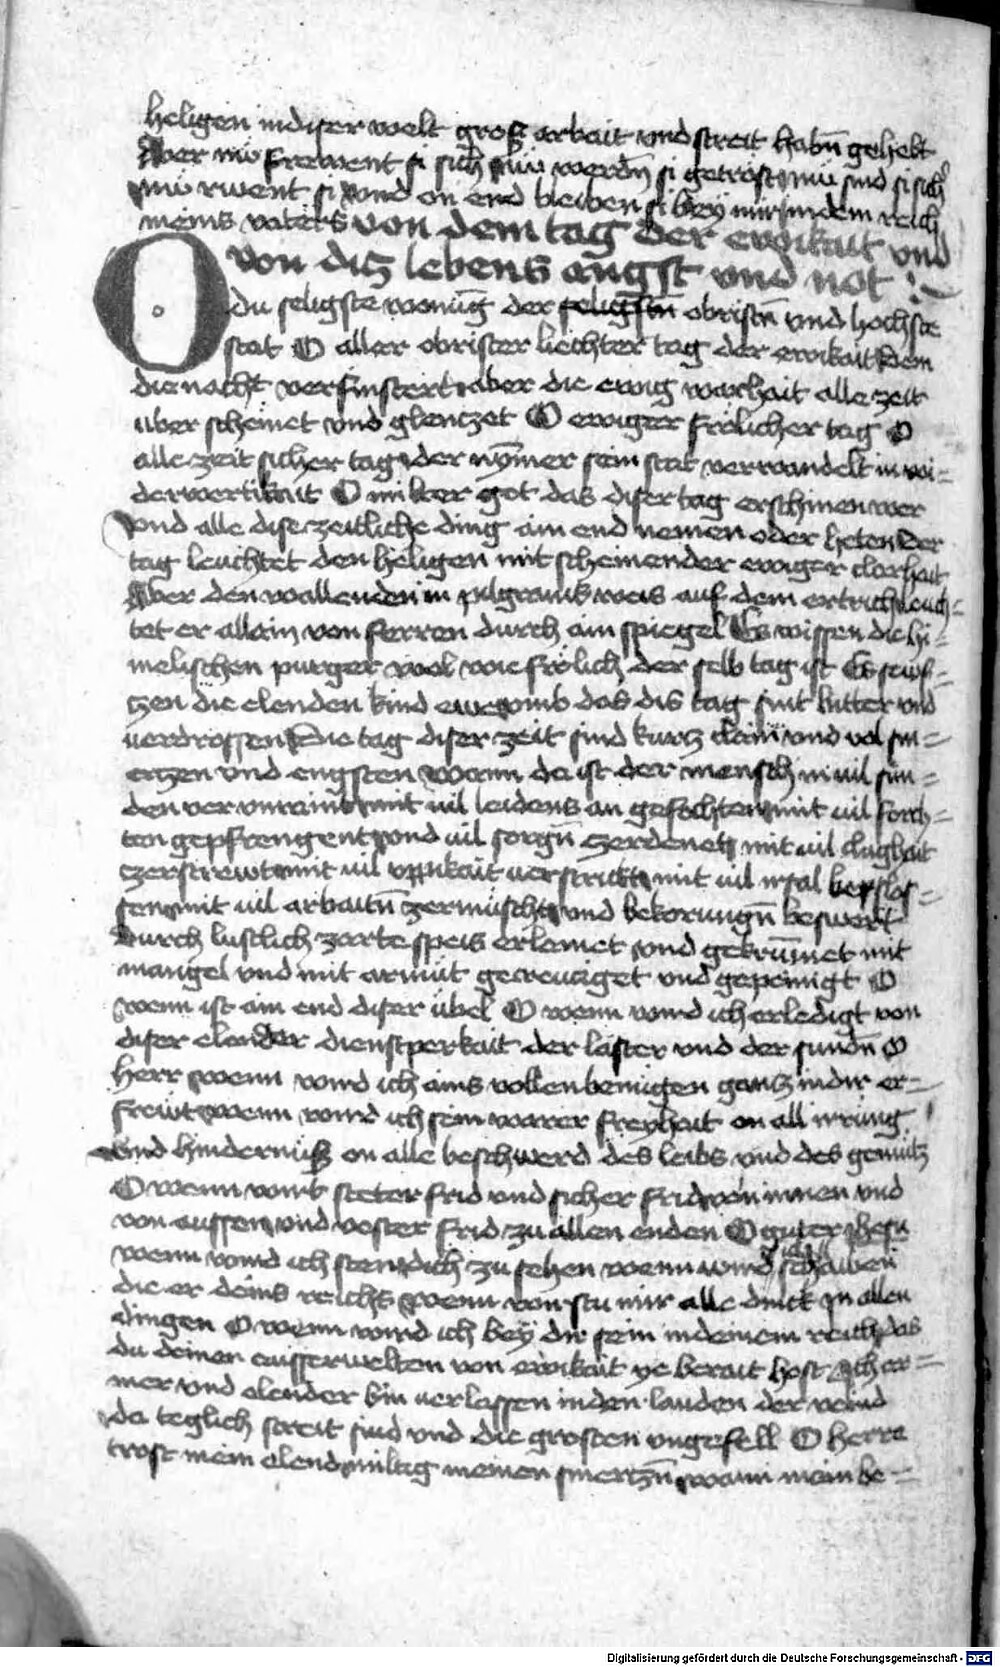 heligen in diser welt gross arbait vnd streit habn̄ gehebt
Aber nu frewent si sich nu werdn̄ si getröst nu sind si sich̾
nu rwent si vnd on end bleiben si bey mir in dem reich
meins vaters von dem tag der ewikait vnd
von diz lebens angst vnd not
O du seligste wonūg der seligstn̄ obristn̄ vnd hochste
stat O aller obrister liechter tag der ewikait dem
die nacht verfinstert aber die ewig warhait alle zeit
uber scheinet vnd glenczet O ewiger frölicher tag O
alle zeit sicher tag der nȳmer sein stat verwandelt in wi=
derwertikait O milter got das diser tag erschinen wer
vnd alle dise zeitliche ding ain end nemen oder heten Der
tag leuchtet den heligen mit scheinender ewiger clarhait
Aber den wallenden in pilgrams weis auf dem ertrich leuch=
tet er allain von ferren durch ain spiegel Es wissen die hi=
melischen purger wol wie frölich der selb tag ist Es seuf=
czen die elenden kind ewe vmb das dis tag sint bitter vnd
verdrossen Die tag diser zeit sind kurcz clain vnd vol sm=
erczen vnd engsten wann da ist der mensch in uil sun=
den ver vnraint mit uil leidens an gefochten mit uil forch=
ten gepfrengent vnd uil sorgn̄ zerdenet mit uil clughait
czerstrewt mit uil vppikait verstrickt mit uil irsal beslos=
sen mit uil arbaitn̄ zermuscht vnd bekorungn̄ beswert
Durch lustlich zarte speis erlemet vnd gekrūmet mit
mangel vnd mit armut gecreuciget vnd gepeinigt O
wenn ist ain end diser übel O wenn wird ich erledigt von
diser elender dienstperkait der laster vnd der sundn̄ O
herr wenn wird ich ains vollen benügen gantz in dir er=
frewt wenn wird ich sein warer freyhait on all irrung
vnd hindernüß on alle beschwerd des leibs vnd des gemütz
O wenn wirt steter frid vnd sicher frid von innen vnd
von aussen vnd vester frid zu allen enden O guter ihesu
wenn wird ich sten dich zu sehen wenn wird ich schawen
die er deins reichs wenn wirstu mir alle dinck in allen
dingen O wenn wird ich bey dir sein in deinem reich das
du deinen ausserwelten von ewikait ye berait host Ich ar=
mer vnd elender bin verlassen in den landen der veind
da teglich streit sind vnd die grosten vngefell O herre
trost mein elend milteg meinen smerczn̄ wann mein be=
Digitalisierung gefördert durch die Deutsche Forschungsgemeinschaft - DFG